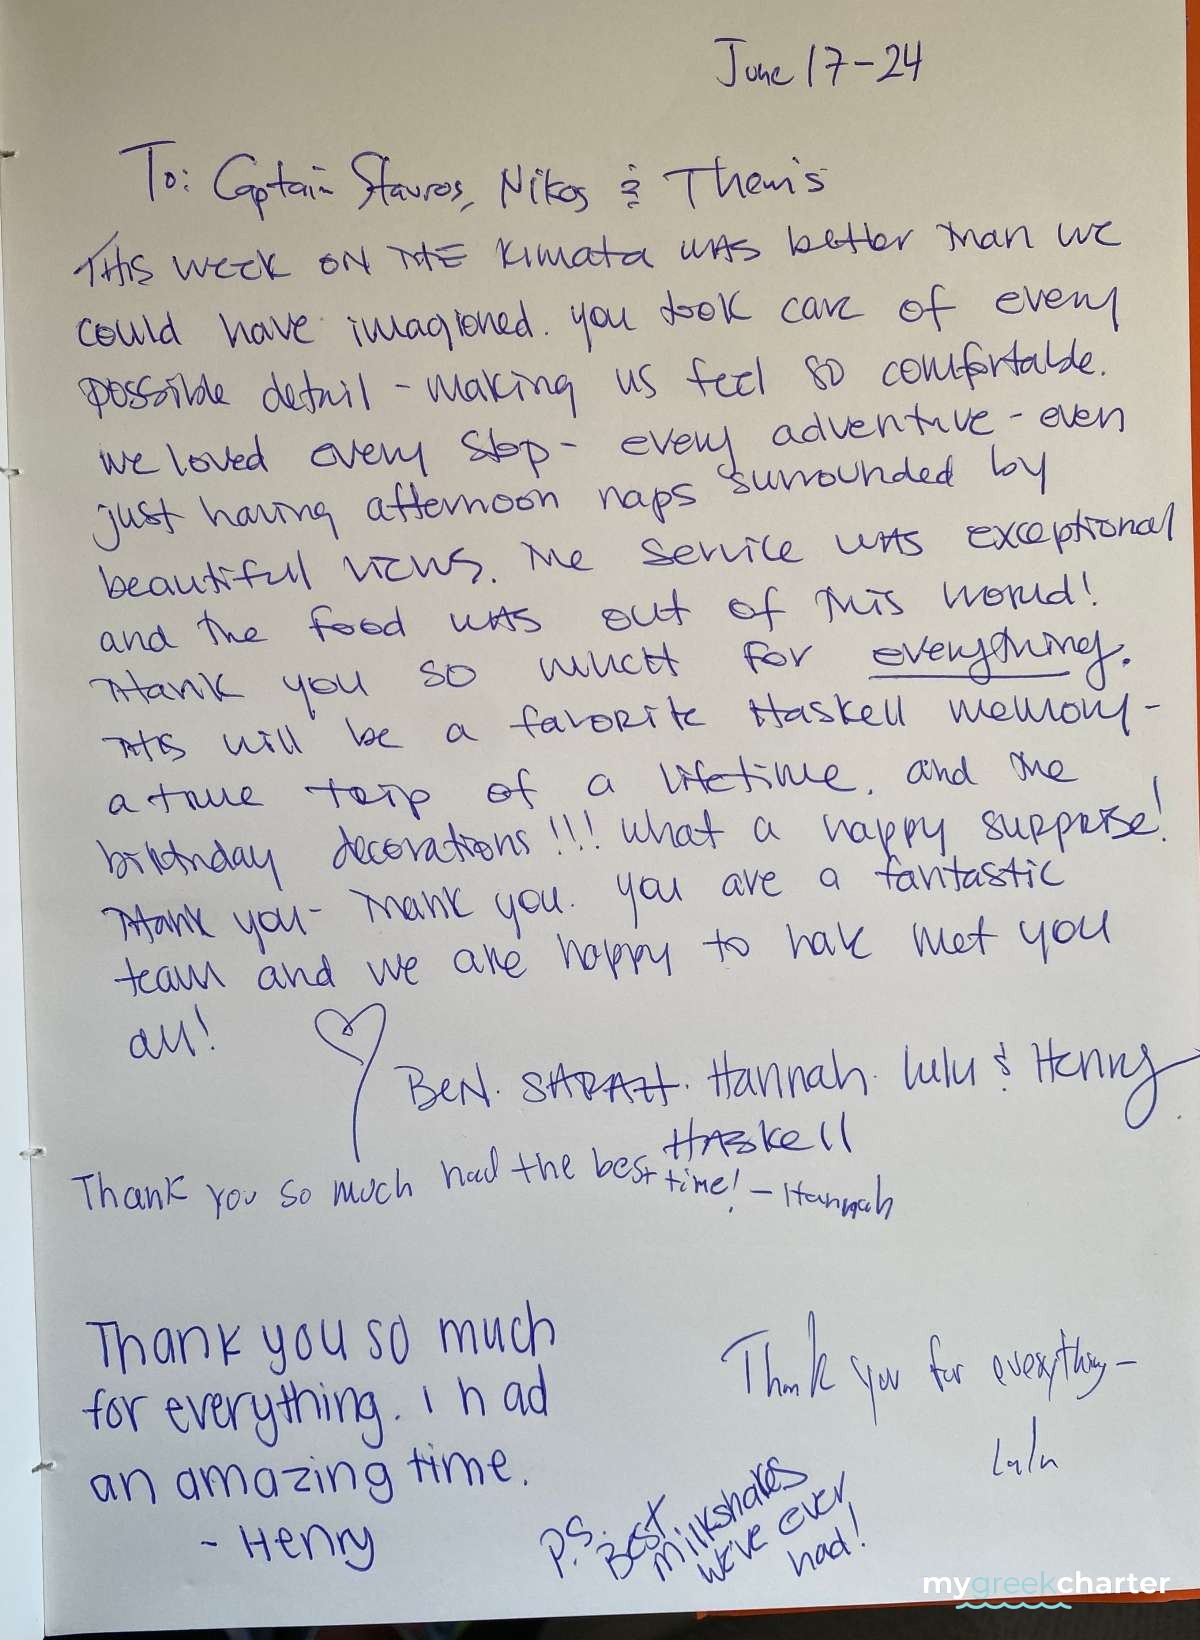 June 17-24
To: Captain Stavros, Nikos & Themis
THIS WEEK ON THE Kimata WAS better than we
could have imagioned. you took care of every
possible detail - making us feel so comfortable.
we loved every stop - every adventure - even
just having afternoon naps surrounded by
beautiful views. The service was exceptional
and the food was out of this world!
Thank you so much for everything.
This will be a favorite Haskell memory -
a true trip of a lifetime. and the
birthday decorations!!! what a happy surprise!
Thank you - Thank you. you are a fantastic
team and we are happy to have met you
all!
BEN. SARAH. Hannah. Lulu & Henry
HASkell
Thank you so much had the best time! - Hannah
Thank you so much
for everything. I had
an amazing time.
- Henry
Thank you for everything -
Lulu
P.S. Best
milkshakes
we've ever
had!
mygreekcharter